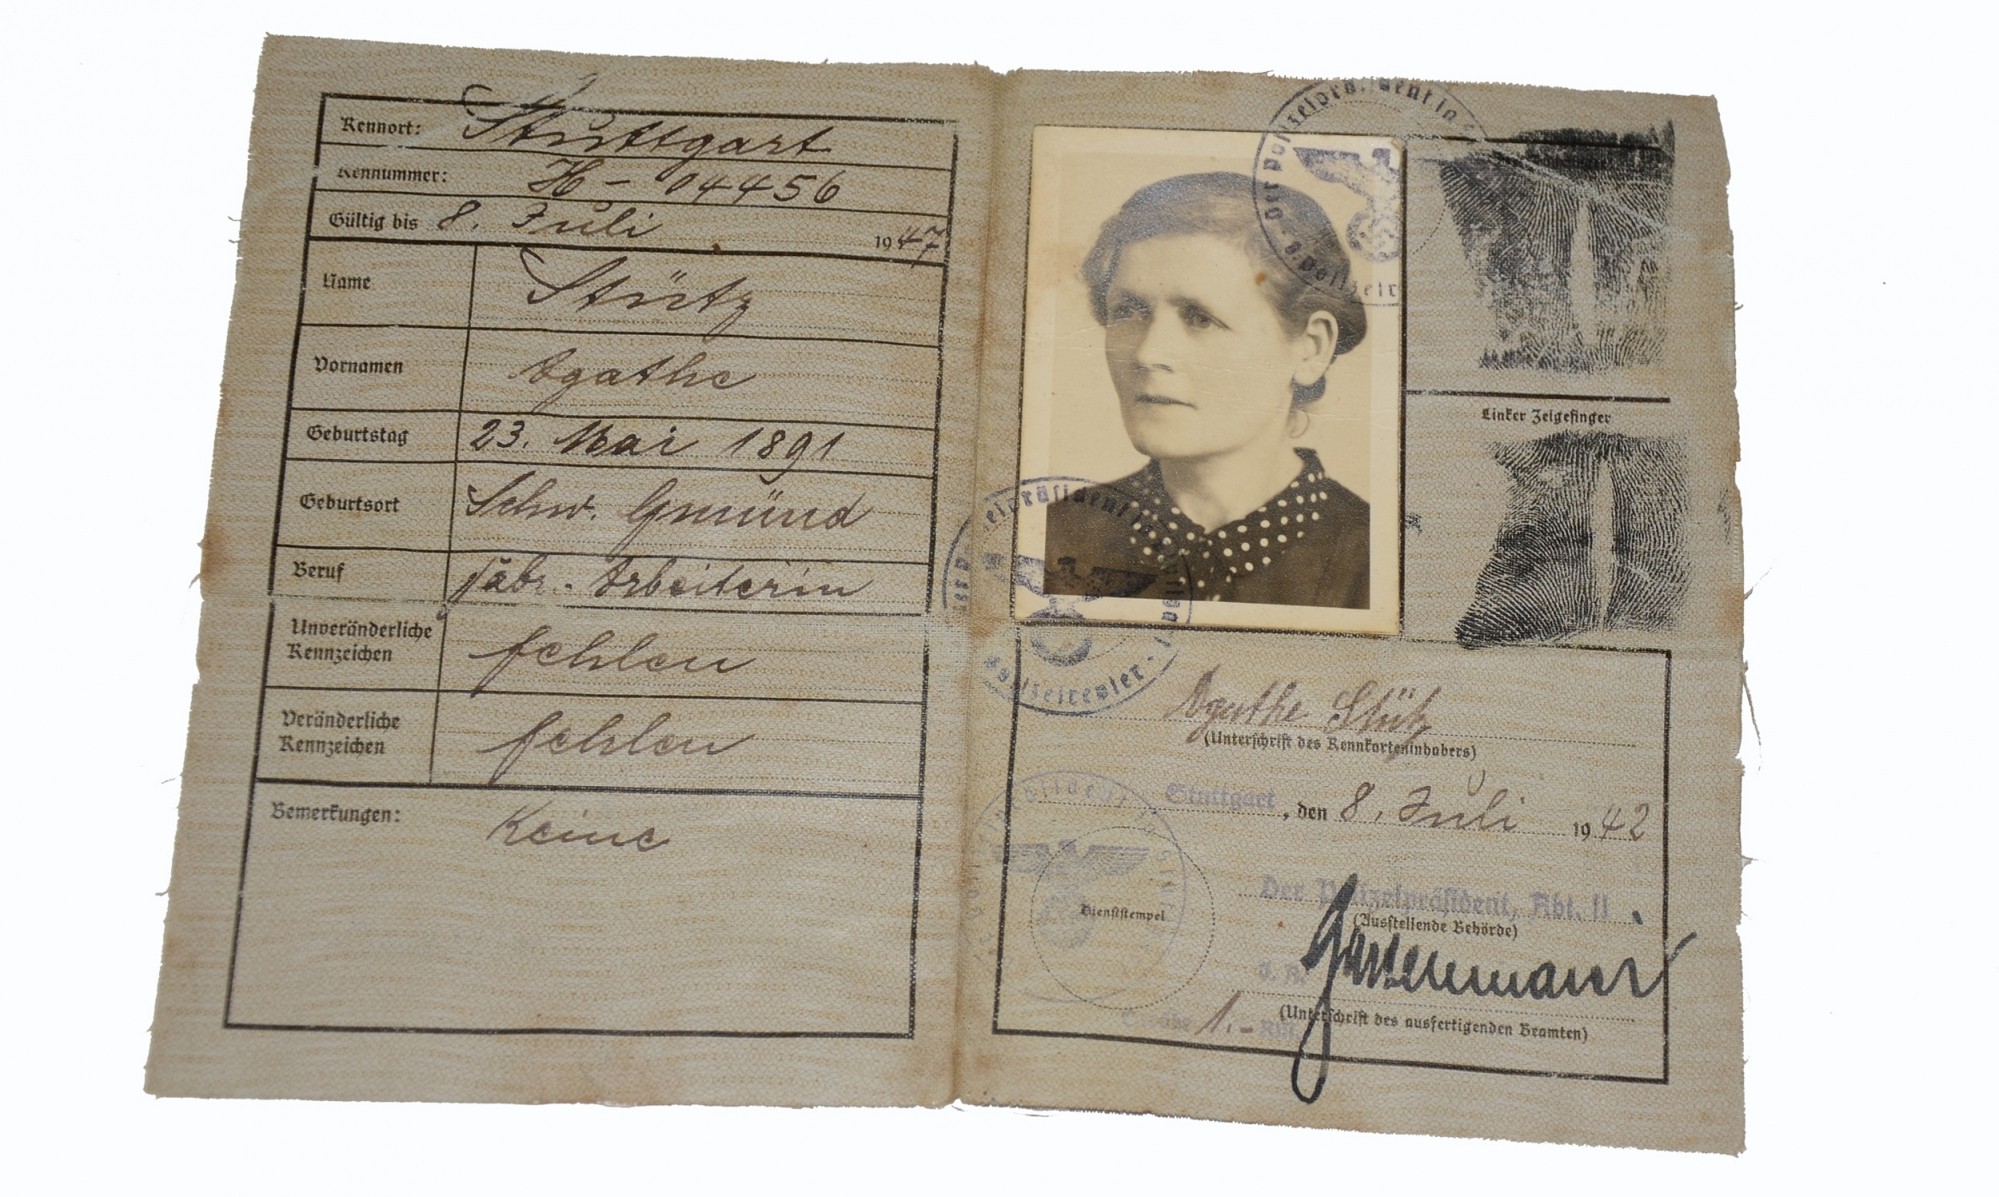 Kennort: Stuttgart
Kennummer: H - 04456
Gültig bis 8. Juli 1947
Name Stütz
Vornamen Agathe
Geburtstag 23. Mai 1891
Geburtsort Schw. Gmünd
Beruf Fabr.- Arbeiterin
Unveränderliche
Kennzeichen fehlen
Veränderliche
Kennzeichen fehlen
Bemerkungen: Keine
Der Polizeipräsident in
8. Polizeire
Linker Zeigefinger
Polizeipräsident in
Polizeirevier
Agathe Stütz
(Unterschrift des Kennkarteninhabers)
Stuttgart, den 8. Juli 1942
Der Polizeipräsident, Abt. II
(Ausstellende Behörde)
Dienststempel
(Unterschrift des ausfertigenden Beamten)
1.-